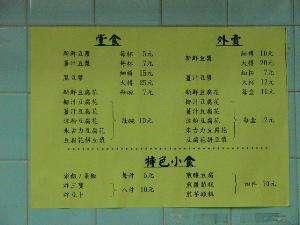 堂食
新鮮豆漿 每杯 5元
薑汁豆漿 每杯 7元
黑豆漿 細樽 15元
大樽 25元
新鮮豆腐花
椰汁豆腐花
薑汁豆腐花
涼粉豆腐花 每碗 10元
朱古力豆腐花
豆腐花拼豆漿
外賣
新鮮豆漿 細樽 10元
大樽 20元
薑汁豆漿 細杯 7元
大杯 12元
新鮮豆腐花 每盒 10元
椰汁豆腐花
薑汁豆腐花
涼粉豆腐花 每盒 12元
朱古力豆腐花
豆腐花拼豆漿
特色小食
每件 5元
炸三寶 八件 10元
煎釀豆腐
煎蘿蔔糕 四件 10元
煎芋頭糕